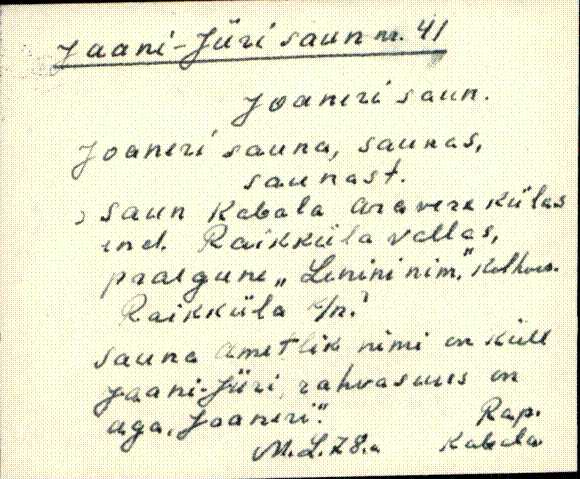 Jaani-Jüri saun nr. 41
Joaneri saun.
Joaneri sauna, saunas,
saunast.
saun Kabala Aravere külas
end. Raikküla vallas,
praegune „Lenini nim." kolhoos.
Raikküla k/n.
sauna ametlik nimi on küll
Jaani-Jüri, rahvasuus on
aga „Joaneri".
Rap.
M.L. 78.a Kabala